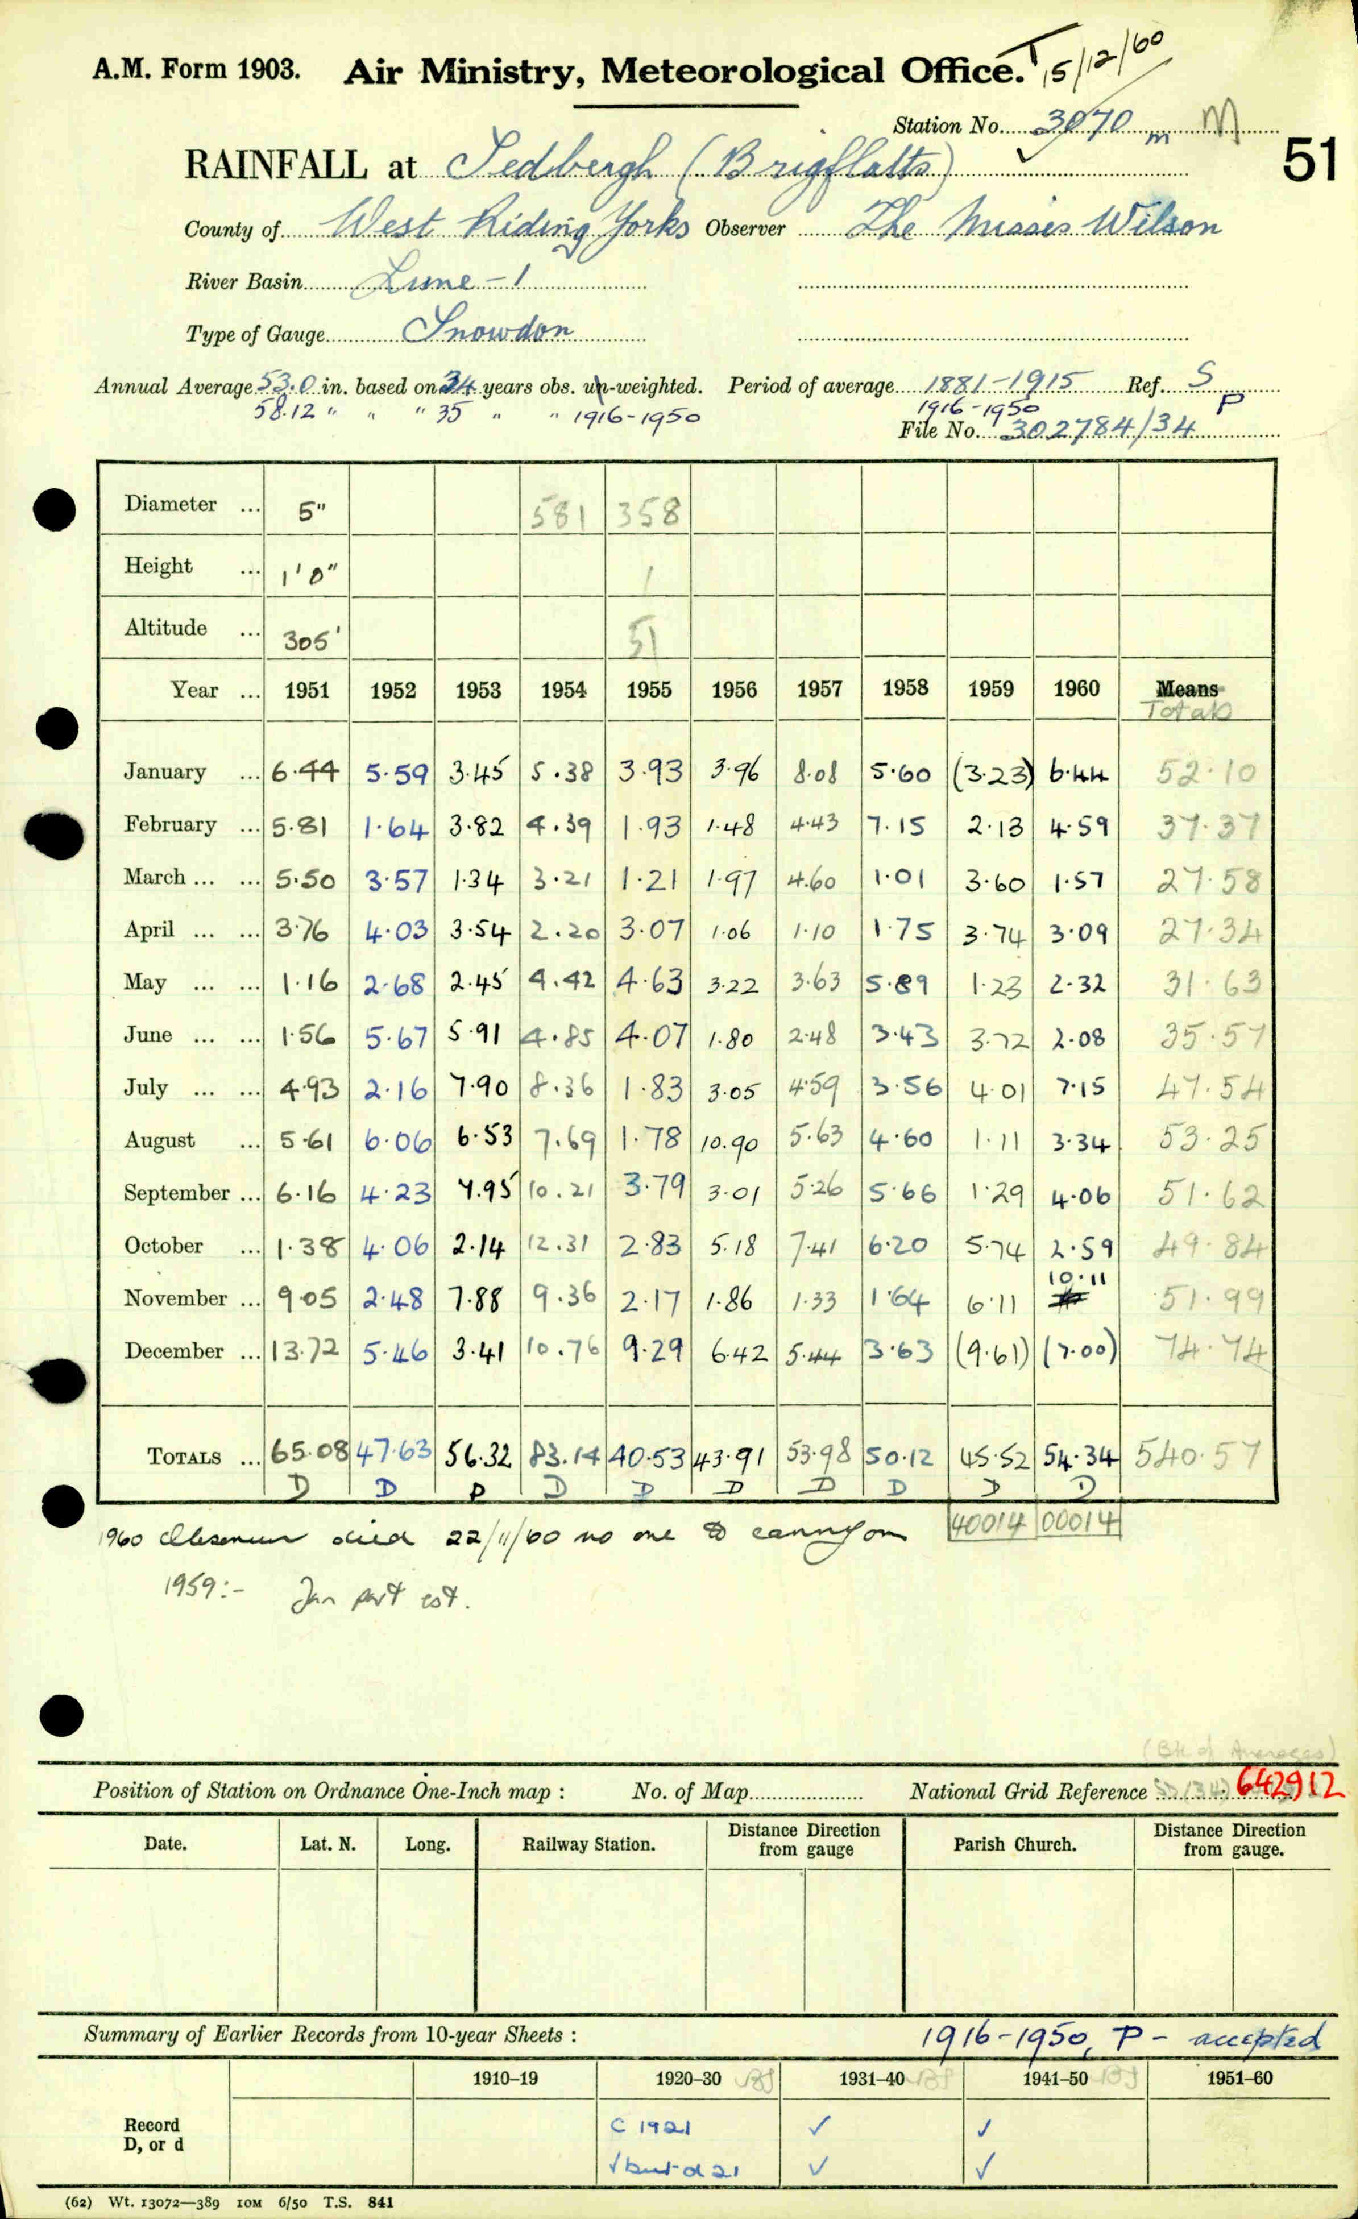 A.M. Form 1903. Air Ministry, Meteorological Office. T 15/12/60
Station No. 3070 m M
RAINFALL at Sedbergh (Brigflatts) 51
County of West Riding Yorks Observer The Misses Wilson
River Basin Lune-1
Type of Gauge Snowdon
Annual Average 53.0 in. based on 34 years obs. un-weighted. Period of average 1881-1915 Ref. S
58.12 " " " 35 " " 1916-1950 1916-1950 P
File No. 302784/34
Diameter ... 5" 581 358
Height ... 1'0" 1
Altitude ... 305' 51
Year ... 1951 1952 1953 1954 1955 1956 1957 1958 1959 1960 Means
Totals
January ... 6.44 5.59 3.45 5.38 3.93 3.96 8.08 5.60 (3.23) 6.44 52.10
February ... 5.81 1.64 3.82 4.39 1.93 1.48 4.43 7.15 2.13 4.59 37.37
March ... ... 5.50 3.57 1.34 3.21 1.21 1.97 4.60 1.01 3.60 1.57 27.58
April ... ... 3.76 4.03 3.54 2.20 3.07 1.06 1.10 1.75 3.74 3.09 27.34
May ... ... 1.16 2.68 2.45 4.42 4.63 3.22 3.63 5.89 1.23 2.32 31.63
June ... ... 1.56 5.67 5.91 4.85 4.07 1.80 2.48 3.43 3.72 2.08 35.57
July ... ... 4.93 2.16 7.90 8.36 1.83 3.05 4.59 3.56 4.01 7.15 47.54
August ... 5.61 6.06 6.53 7.69 1.78 10.90 5.63 4.60 1.11 3.34 53.25
September ... 6.16 4.23 7.95 10.21 3.79 3.01 5.26 5.66 1.29 4.06 51.62
October ... 1.38 4.06 2.14 12.31 2.83 5.18 7.41 6.20 5.74 2.59 49.84
November ... 9.05 2.48 7.88 9.36 2.17 1.86 1.33 1.64 6.11 10.11 51.99
December ... 13.72 5.46 3.41 10.76 9.29 6.42 5.44 3.63 (9.61) (7.00) 74.74
TOTALS ... 65.08 47.63 56.32 83.14 40.53 43.91 53.98 50.12 45.52 54.34 540.57
D D D D D D D D D D
1960 Observer died 22/11/60 no one to carry on 40014 00014
1959:- Jan part est.
(Bk of Averages)
Position of Station on Ordnance One-Inch map : No. of Map National Grid Reference SD(34) 642912
Date. Lat. N. Long. Railway Station. Distance Direction from gauge Parish Church. Distance Direction from gauge.
Summary of Earlier Records from 10-year Sheets : 1916-1950, P - accepted
1910–19 1920–30 1931–40 1941–50 1951–60
Record C 1921 ✓ ✓
D, or d ✓ but d 21 ✓ ✓
(62) Wt. 13072—389 10M 6/50 T.S. 841